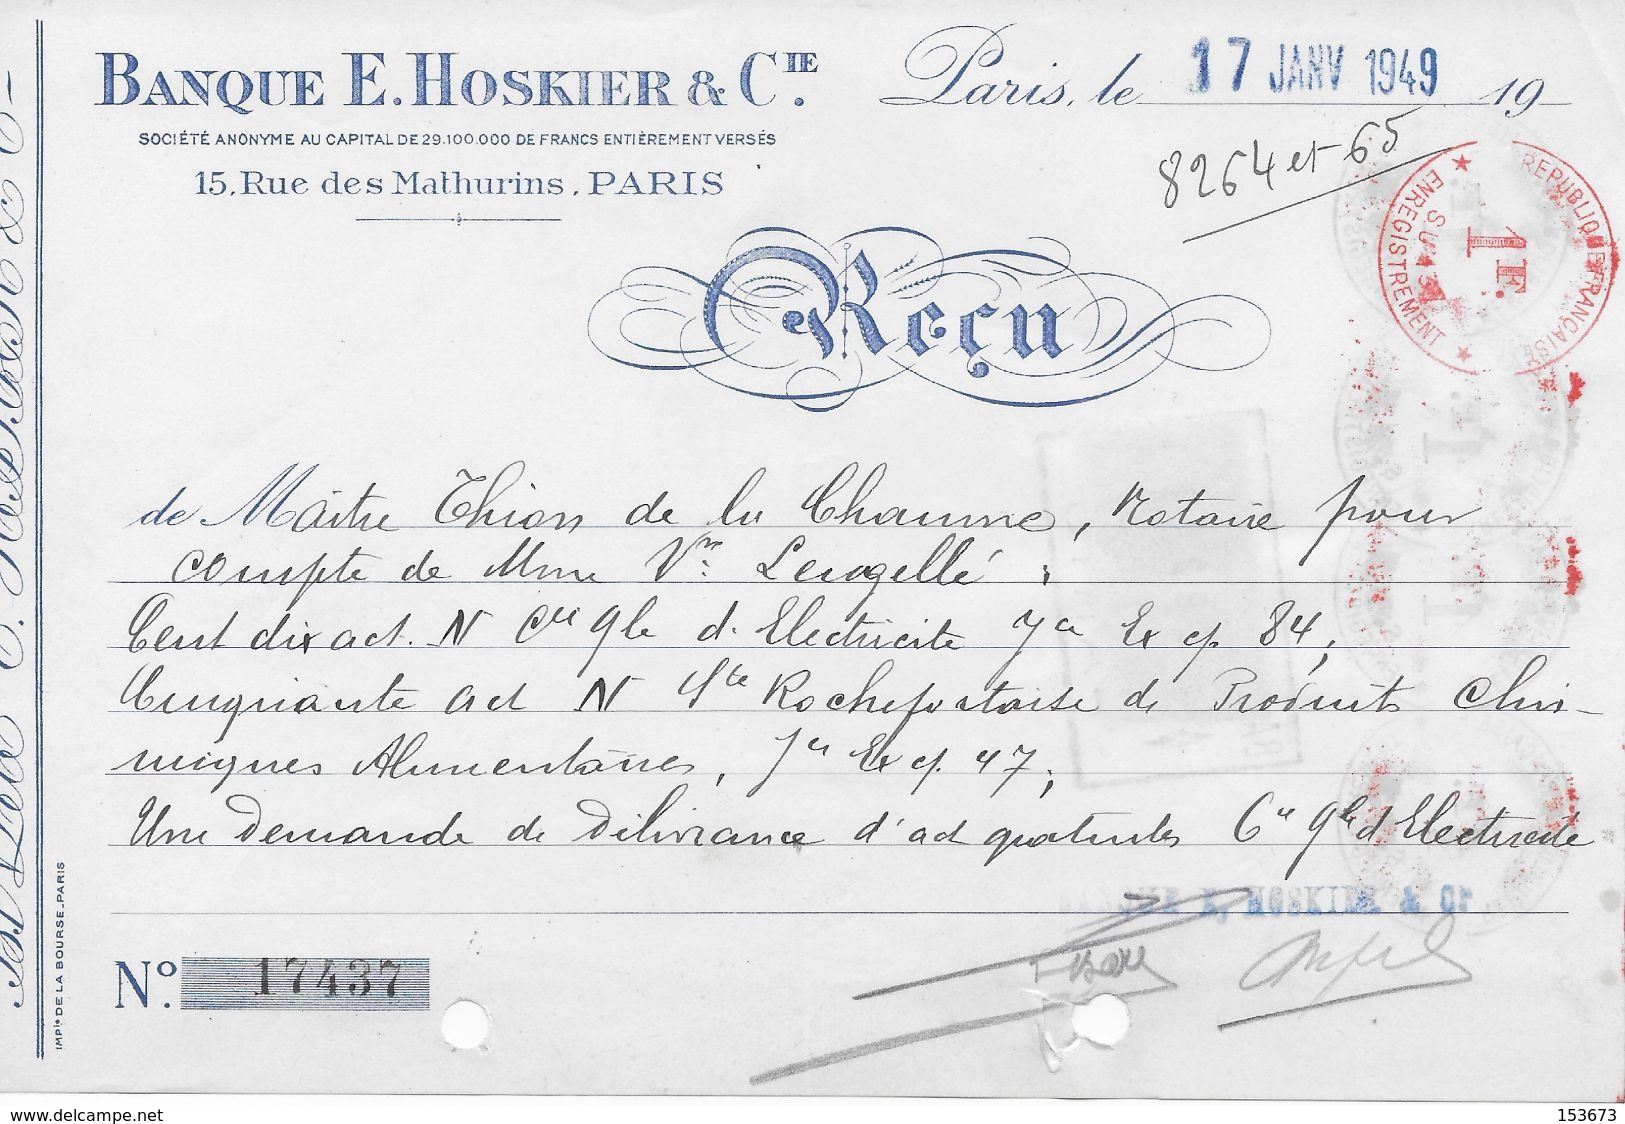 BANQUE E. HOSKIER & CIE.
SOCIÉTÉ ANONYME AU CAPITAL DE 29.100.000 DE FRANCS ENTIÈREMENT VERSÉS
15, Rue des Mathurins, PARIS
Paris, le 17 JANV 1949 19
8264 et 65
RÉPUBLIQUE FRANÇAISE
ENREGISTREMENT
1 F.
Reçu
de Maître Thion de la Chaume, Notaire pour
compte de Mme Vve
Cent dix act. N Cie Gle d'Electricite Jce Ex cp. 84,
Cinquante act N Ste Rochefortaise de Produits Chi-
miques Alimentaires, Jce Ex cp. 47,
Une Demande de Délivrance d'act gratuites Cie Gle d'Electricité
BANQUE E. HOSKIER & Cie
No. 17437
IMPie DE LA BOURSE_PARIS
www.delcampe.net
153673